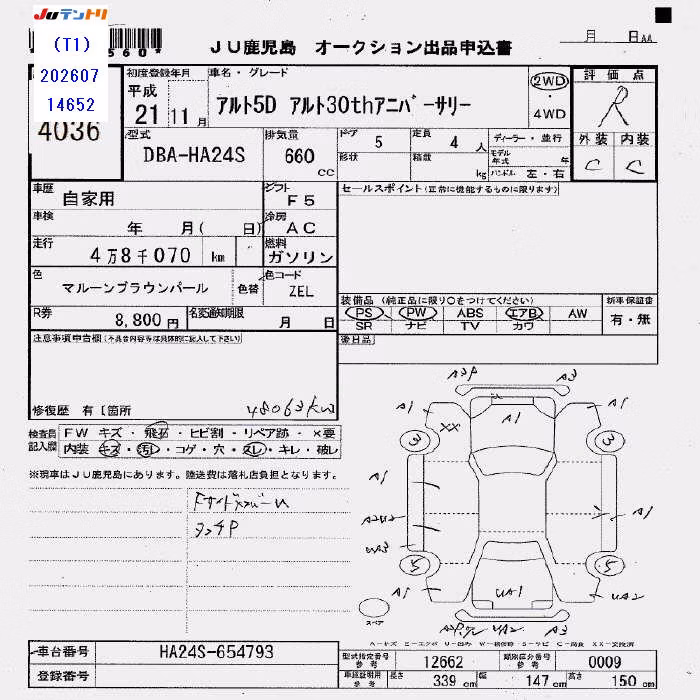 JUテントリ
(T1)
202607
14652
4036
JU鹿児島 オークション出品申込書
月 日
初度登録年月
平成
21 11月
車名・グレード
アルト5D アルト30thアニバーサリー
2WD
・
4WD
評価点
R
外装 内装
C C
型式
DBA-HA24S
排気量
660 cc
ドア 5
定員 4 人
形状
積載 kg
ディーラー・並行
モデル年式 年
ハンドル 左・右
車歴
自家用
シフト
F5
セールスポイント(正常に機能するものに限ります)
車検
年 月( 日)
冷房
AC
走行
4万8千070 km
燃料
ガソリン
色
マルーンブラウンパール
色替
色コード
ZEL
R券
8,800円
名変通知期限
月 日
装備品 (純正品に限り○をつけてください)
PS PW ABS エアB AW
SR ナビ TV カワ
新車保証書
有・無
後日品
注意事項申告欄(不具合内容等は具体的に記入して下さい)
修復歴 有 [箇所
48063km
検査員記入欄
FW キズ・飛石・ヒビ割・リペア跡・×要
内装 キズ・汚レ・コゲ・穴・スレ・キレ・破レ
※現車はJU鹿児島にあります。陸送費は落札店負担となります。
A3P A3
A1 A1 A1
XX
3 3
A1
A2U2 A1
UA3
5 5
A1 UA1 UA2
UA2 A3
スペア
車台番号
HA24S-654793
登録番号
型式指定番号 参考
12662
類別区分番号 参考
0009
車検証明用 参考
長さ 339 cm
幅 147 cm
高さ 150 cm